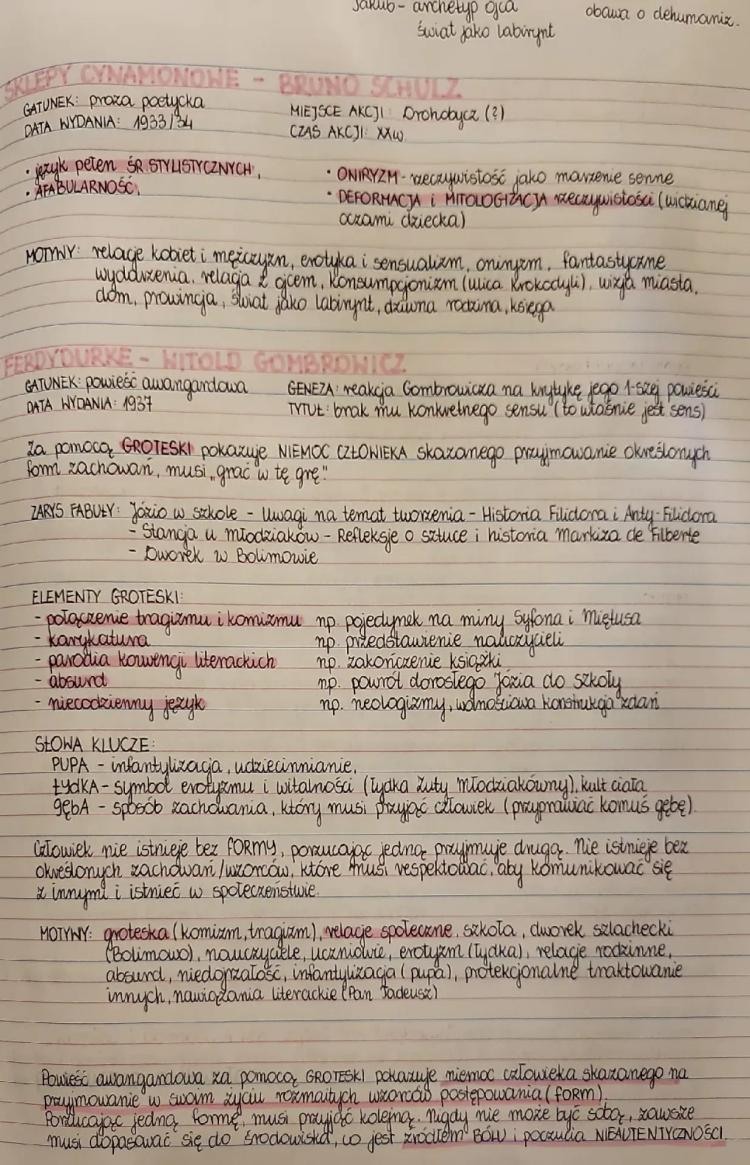 Jakub - archetyp ojca
świat jako labirynt
obawa o dehumaniz.
SKLEPY CYNAMONOWE - BRUNO SCHULZ
GATUNEK: proza poetycka
DATA WYDANIA: 1933/34
MIEJSCE AKCJI: Drohobycz (?)
CZAS AKCJI: XXw.
• język pełen ŚR. STYLISTYCZNYCH,
• AFABULARNOŚĆ,
• ONIRYZM - rzeczywistość jako marzenie senne
• DEFORMACJA i MITOLOGIZACJA rzeczywistości (widzianej
oczami dziecka)
MOTYWY: relacje kobiet i mężczyzn, erotyka i sensualizm, oniryzm, fantastyczne
wydarzenia, relacja z ojcem, konsumpcjonizm (ulica Krokodyli), wizja miasta,
dom, prowincja, świat jako labirynt, dziwna rodzina, księga
FERDYDURKE - WITOLD GOMBROWICZ
GATUNEK: powieść awangardowa
DATA WYDANIA: 1937
GENEZA: reakcja Gombrowicza na krytykę jego 1-szej powieści
TYTUŁ: brak mu konkretnego sensu (to właśnie jest sens)
Za pomocą GROTESKI pokazuje NIEMOC CZŁOWIEKA skazanego przyjmowanie określonych
form zachowań, musi „grać w tę grę"
ZARYS FABUŁY: Józio w szkole - Uwagi na temat tworzenia - Historia Filidora i Anty-Filidora
- Stancja u Młodziaków - Refleksje o sztuce i historia Markiza de Filberte
- Dworek w Bolimowie
ELEMENTY GROTESKI:
- połączenie tragizmu i komizmu np. pojedynek na miny Syfona i Miętusa
- karykatura np. przedstawienie nauczycieli
- parodia konwencji literackich np. zakończenie książki
- absurd np. powrót dorosłego Józia do szkoły
- niecodzienny język np. neologizmy, wolnościowa konstrukcja zdań
SŁOWA KLUCZE:
PUPA - infantylizacja, udziecinnianie,
ŁYDKA - symbol erotyzmu i witalności (łydka Zuty Młodziakówny), kult ciała
GĘBA - sposób zachowania, który musi przyjąć człowiek (przyprawiać komuś gębę).
Człowiek nie istnieje bez FORMY, porzucając jedną przyjmuje drugą. Nie istnieje bez
określonych zachowań/wzorców, które musi respektować, aby komunikować się
z innymi i istnieć w społeczeństwie.
MOTYWY: groteska (komizm, tragizm), relacje społeczne, szkoła, dworek szlachecki
(Bolimowo), nauczyciele, uczniowie, erotyzm (łydka), relacje rodzinne,
absurd, niedojrzałość, infantylizacja (pupa), protekcjonalne traktowanie
innych, nawiązania literackie (Pan Tadeusz)
Powieść awangardowa za pomocą GROTESKI pokazuje niemoc człowieka skazanego na
przyjmowanie w swoim życiu rozmaitych wzorców postępowania (form)
Porzucając jedną formę, musi przyjąć kolejną. Nigdy nie może być sobą, zawsze
musi dopasować się do środowiska, co jest źródłem BÓLU i poczucia NIEAUTENTYCZNOŚCI.